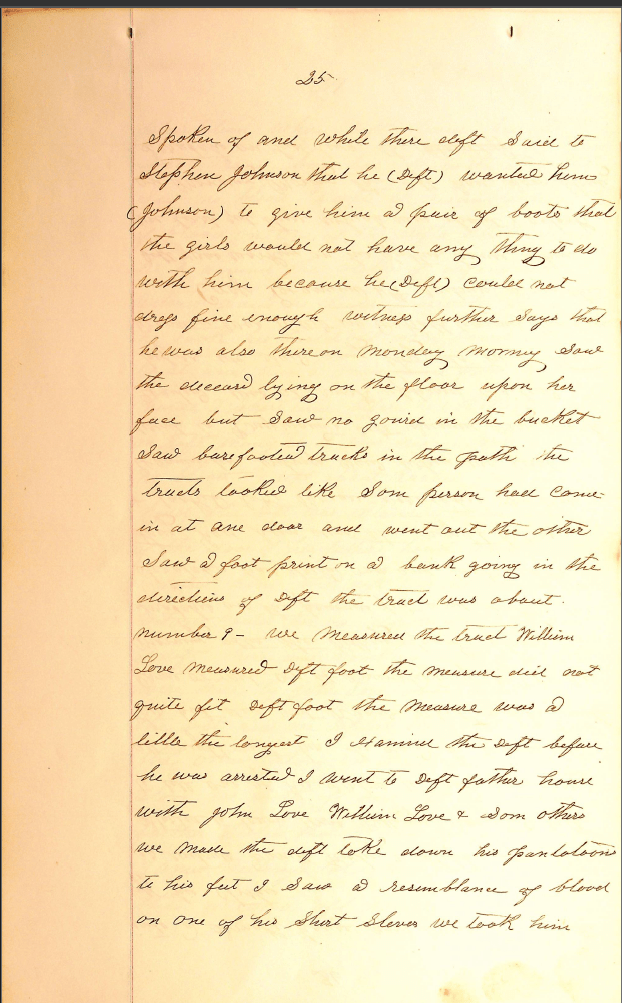 25
Spoken of and while there deft Said to
Stephen Johnson that he (Deft) wanted him
(Johnson) to give him a pair of boots that
the girls would not have any thing to do
with him because he (Deft) could not
dress fine enough witness further Says that
he was also there on Monday morning Saw
the deceasd lying on the floor upon her
face but Saw no gourd in the bucket
Saw barefooted tracks in the path the
tracks looked like Som person had come
in at one door and went out the other
Saw a foot print on a bank going in the
directions of Deft the tract was about
number 9 - we measured the tract William
Love measured Deft foot the measure did not
quite fit Deft foot the measure was a
little the longest I examined the Deft before
he was arrested I went to Deft father house
with John Love William Love & Som others
we made the deft take down his pantaloons
to his feet I Saw a resemblance of blood
on one of his Shirt Sleves we took him